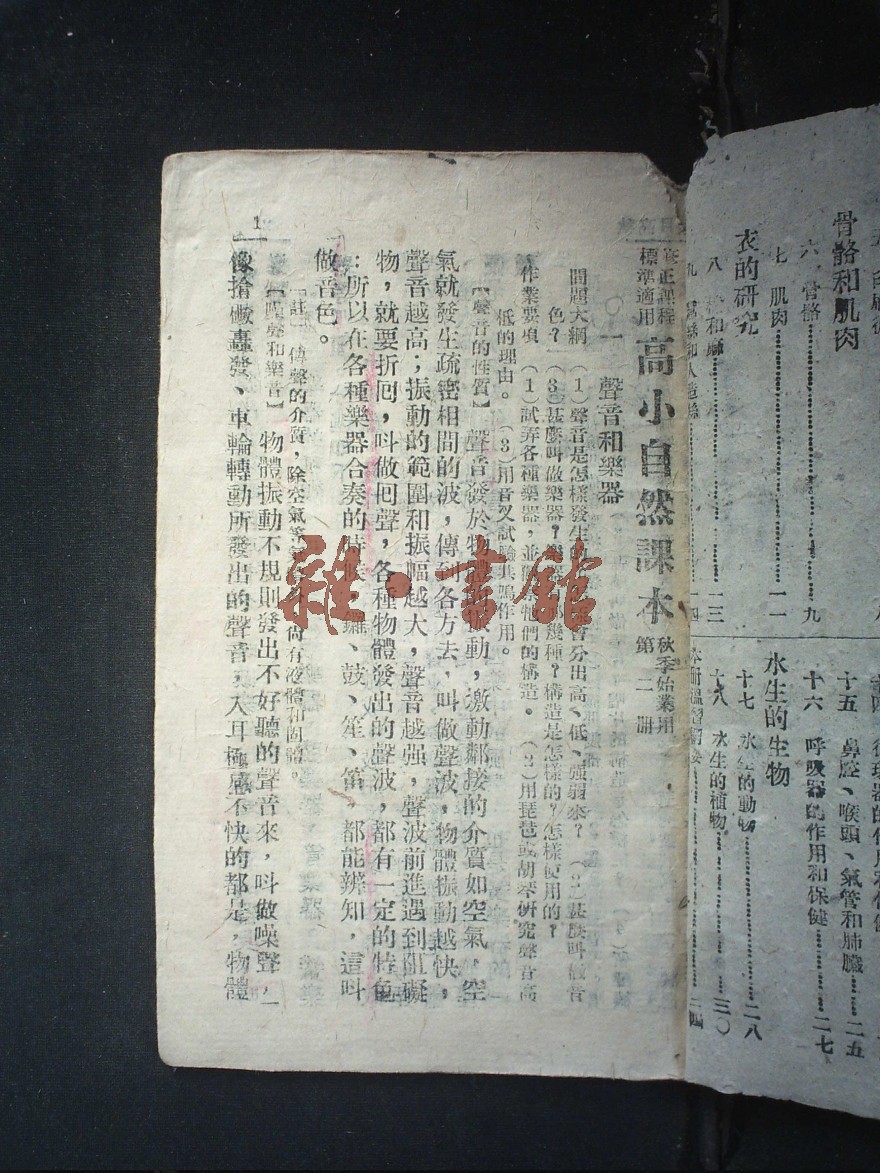 骨骼和肌肉
六 骨骼………九
七 肌肉………一一
衣的研究
八 和………一三
九 蠶絲和人造絲………一四
十五 鼻腔、喉頭、氣管和肺臟………二五
十六 呼吸器的作用和保健………二七
水生的生物
十七 水生的動物………二八
十八 水生的植物………三〇
修正課程
標準適用
高小自然課本
秋季始業用
第二冊
一 聲音和樂器
問題大綱 (1)聲音是怎樣發生的 會分出高、低、强弱來? (2)甚麼叫做音
色? (3)甚麼叫做樂器? 幾種?構造是怎樣的?怎樣使用的?
作業要項 (1)試弄各種樂器,並 他們的構造。 (2)用琵琶或胡琴研究聲音高
低的理由。 (3)用音叉試驗共鳴作用。
【聲音的性質】 聲音發於物體 動,激動鄰接的介質如空氣,空
氣就發生疏密相間的波,傳到各方去,叫做聲波,物體振動越快,
聲音越高;振動的範圍和振幅越大,聲音越强,聲波前進遇到阻礙
物,就要折囘,叫做囘聲,各種物體發出的聲波,都有一定的特色
:所以在各種樂器合奏的時 鑼、鼓、笙、笛,都能辨知,這叫
做音色。
【註一 傳聲的介質,除空氣等 尚有液體和固體。
【噪聲和樂音】 物體振動不規則發出不好聽的聲音來,叫做噪聲,
像搶礮轟發、車輪轉動所發出的聲音,入耳極感不快的都是,物體
1
雜·書館